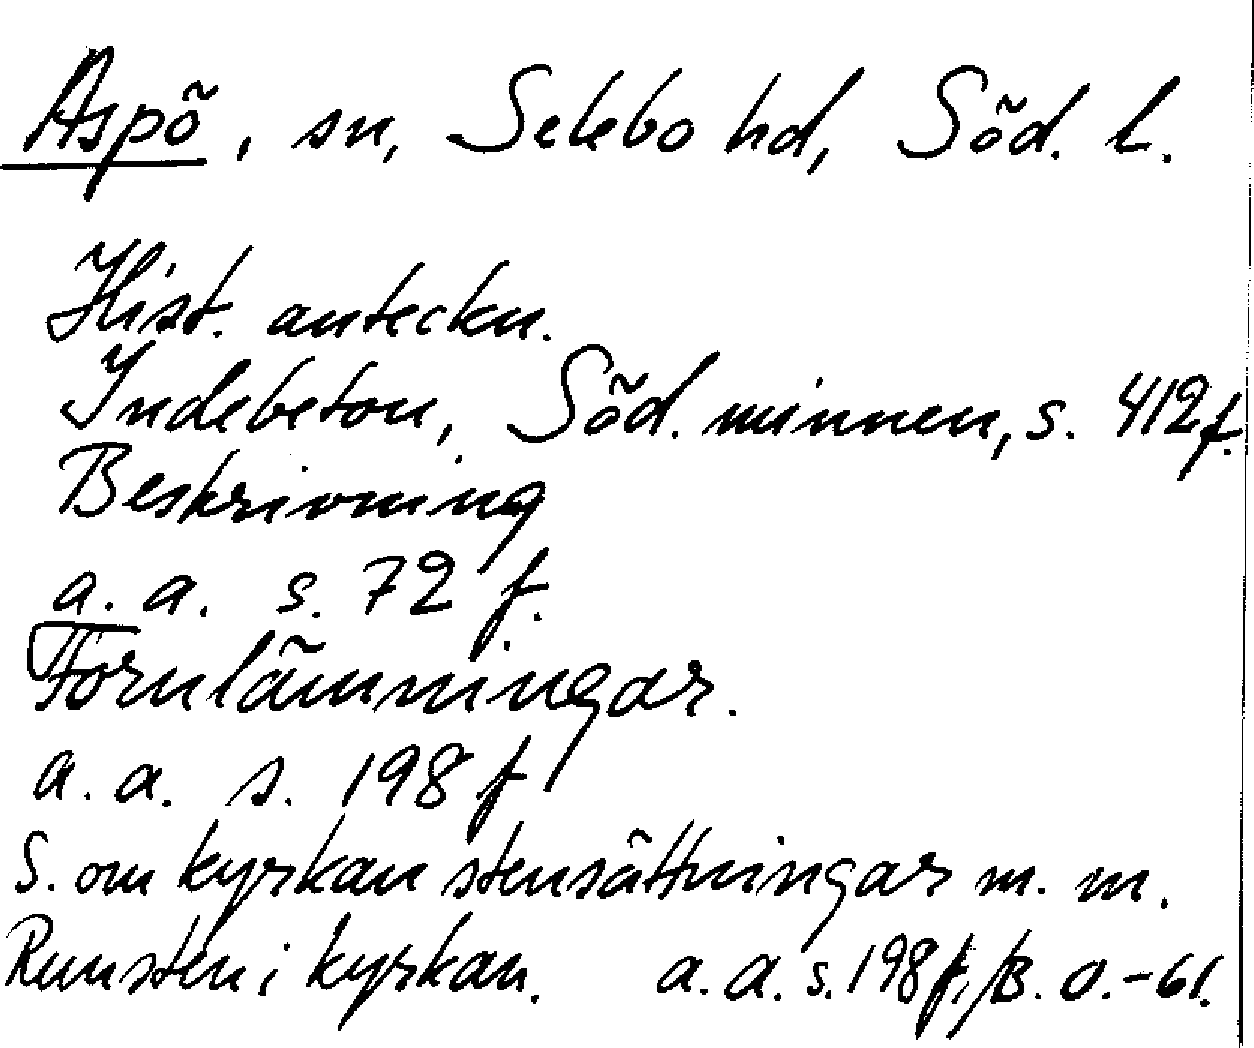 Aspö, sn, Selebo hd, Söd. l.
Hist. anteckn.
Indebetou, Söd. minnen, s. 412 f.
Beskrivning
a. a. s. 72 f.
Fornlämningar.
a. a. s. 198 f
S. om kyrkan stensättningar m. m.
Runsten i kyrkan. a. a. s. 198 f, /B. O. -61.